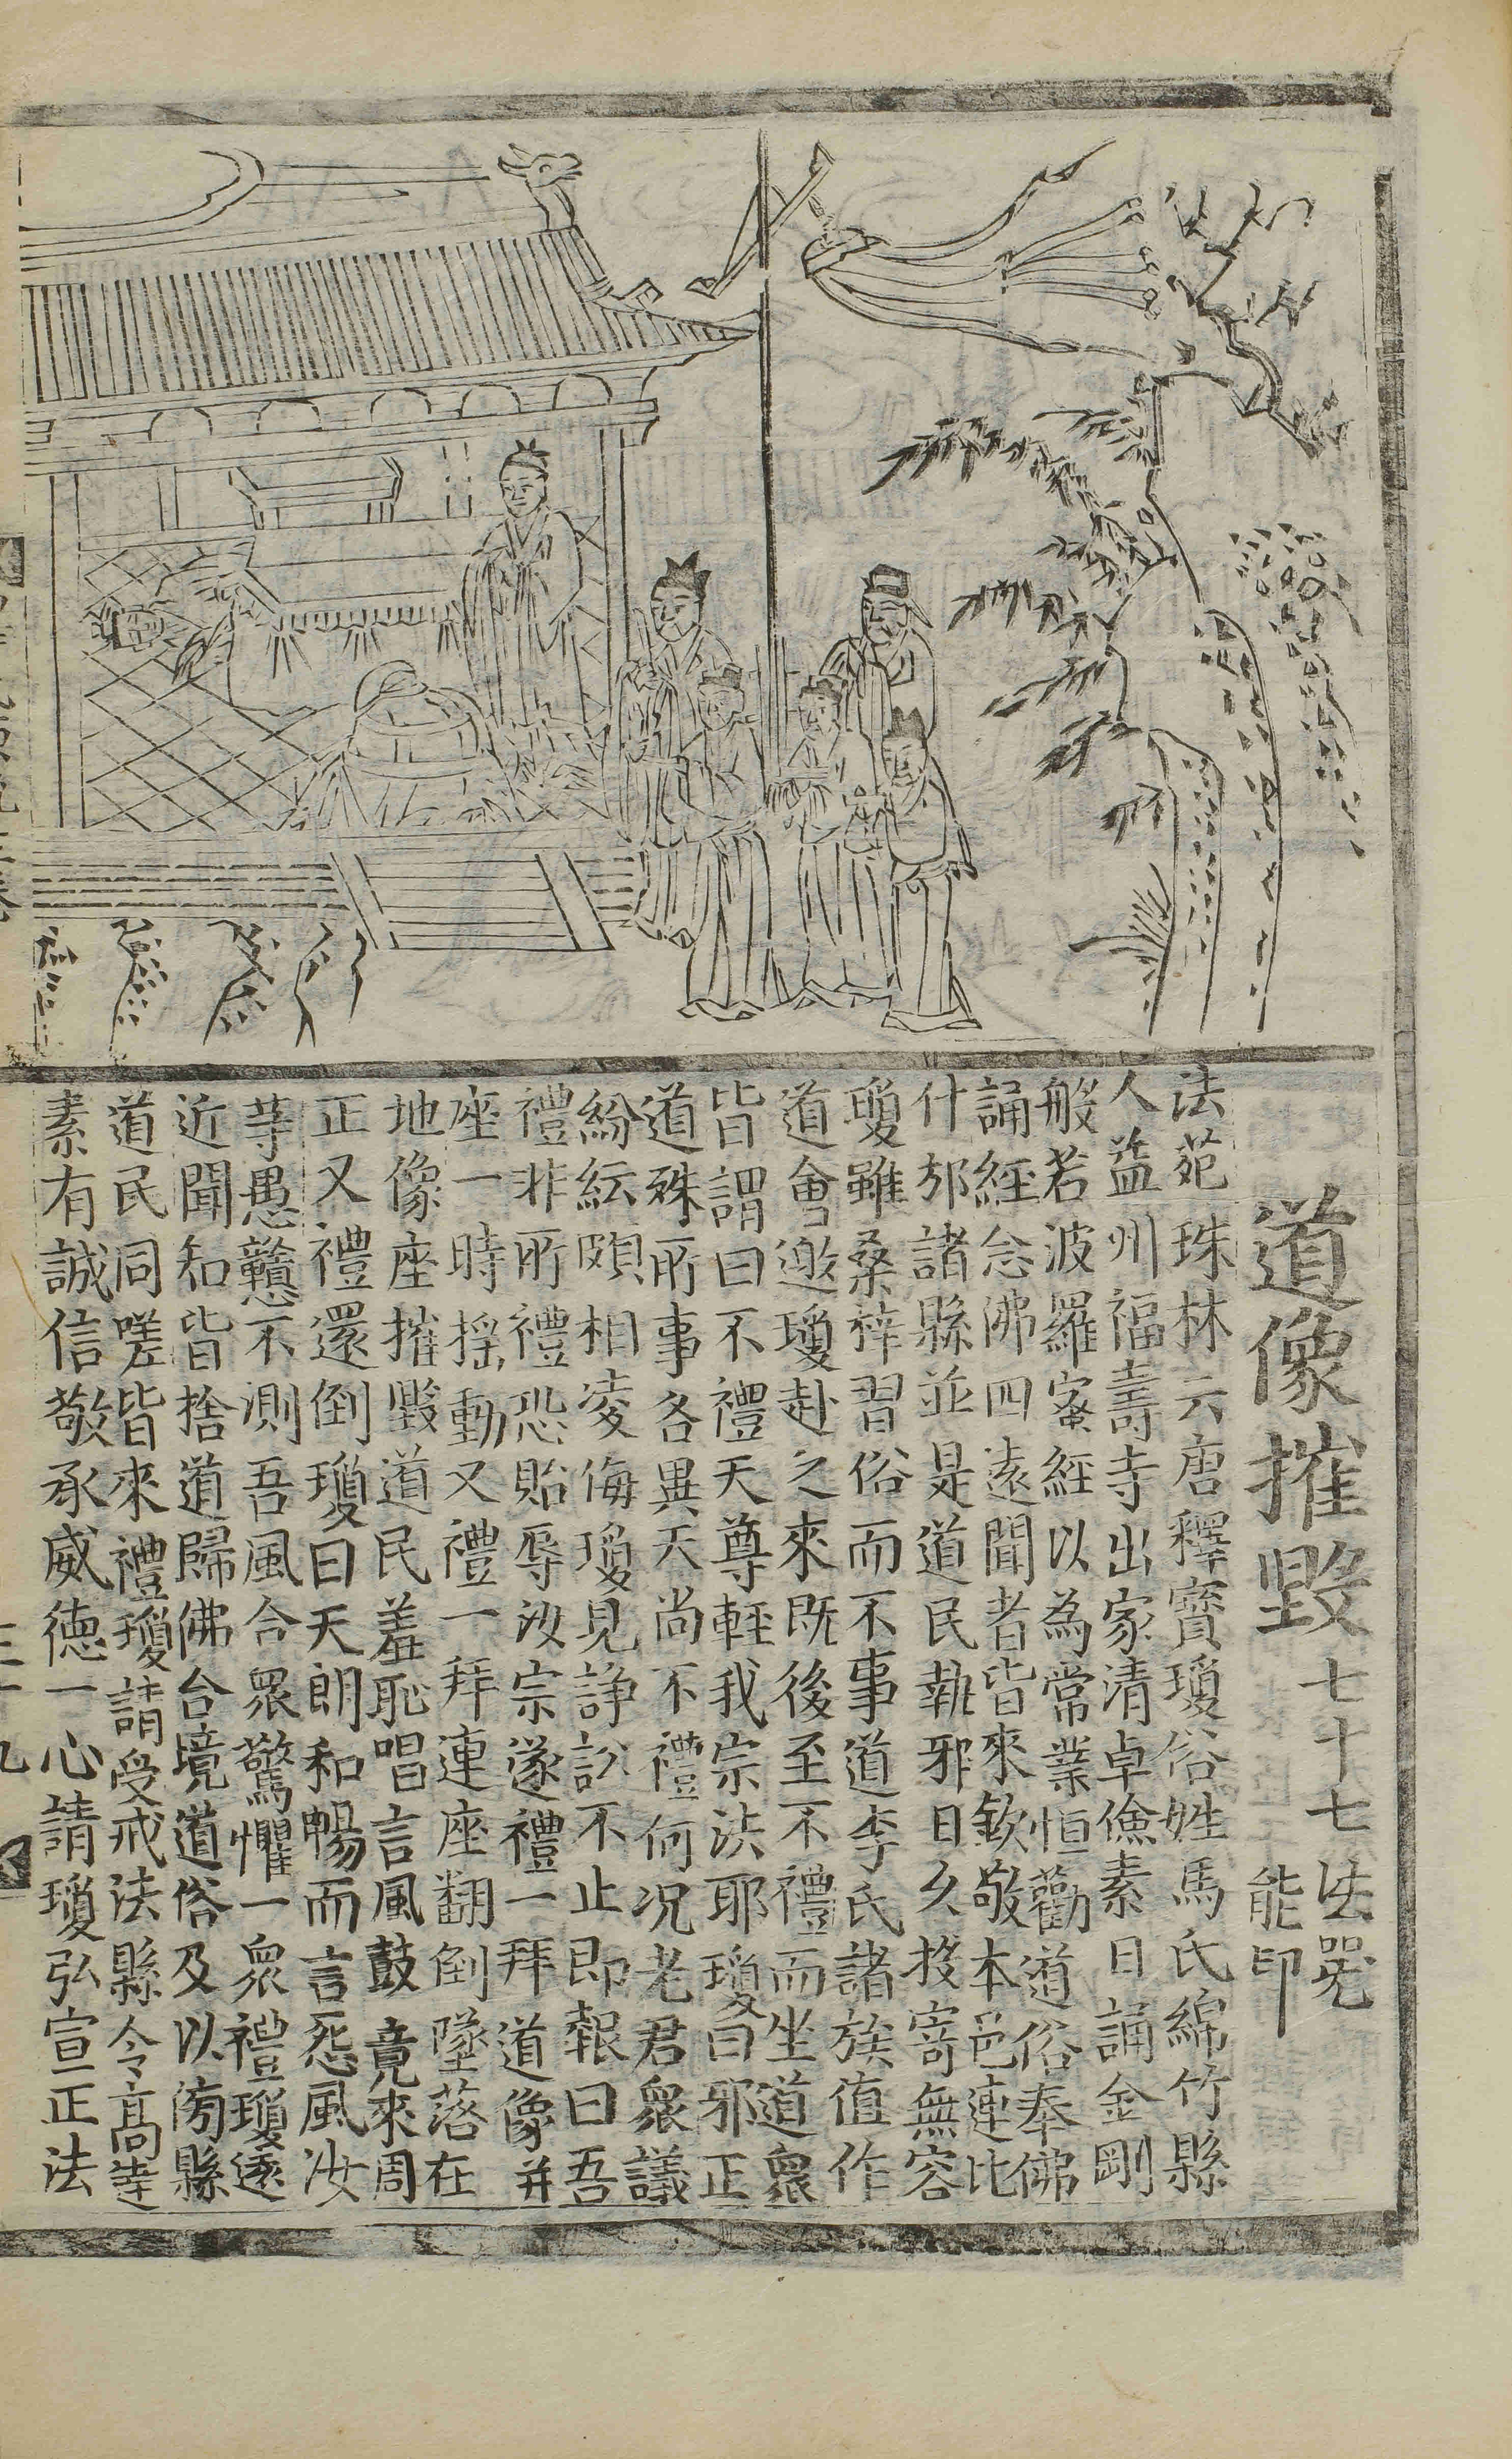 道像摧毀 七十七 法咒 能印
法苑珠林云唐釋寶瓊俗姓馬氏綿竹縣
人益州福壽寺出家清卓儉素日誦金剛
般若波羅蜜經以為常業恒勸道俗奉佛
誦經念佛四遠聞者皆來欽敬本邑連比
什邡諸縣並是道民執邪日久投寄無容
瓊雖桑梓習俗而不事道李氏諸族值作
道會邀瓊赴之來既後至不禮而坐道衆
皆謂曰不禮天尊輕我宗法耶瓊曰邪正
道殊所事各異天尚不禮何況老君衆議
紛紜頗相凌侮瓊見諍訟不止即報曰吾
禮非所禮恐貽辱汝宗遂禮一拜道像并
座一時搖動又禮一拜連座翻倒墜落在
地像座摧毀道民羞恥唱言風鼓竟來周
正又禮還倒瓊曰天朗和暢而言怨風汝
等愚戇不測吾風合衆驚懼一衆禮瓊遂
近聞知皆捨道歸佛合境道俗及以傍縣
道民同嗟皆來禮瓊請受戒法縣令高達
素有誠信敬承威德一心請瓊弘宣正法